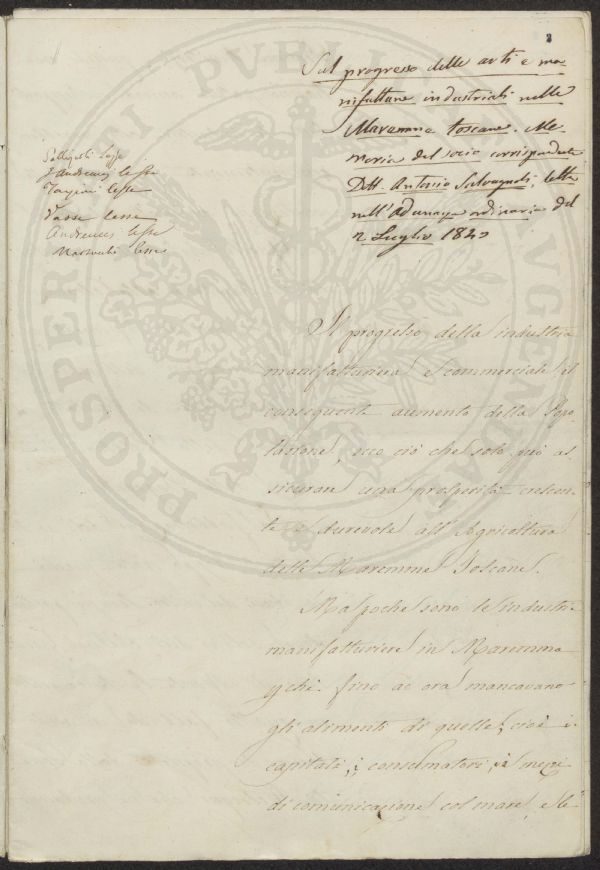 2
Sul progresso delle arti e ma-
nifatture industriali nelle
Maremme toscane. Me-
moria del socio corrispondente
Dtt. Antonio Salvagnoli, letta
nell'Adunanza ordinaria del
2 Luglio 184
lesse
Tazzini lesse
lesse
Andreucci lesse
lesse
Il progresso della industria
manifatturiera e commerciale il
conseguente aumento della Popo-
lazione, ecco ciò che solo può as-
sicurare una prosperità crescen-
te e durevole all'Agricoltura
delle Maremme Toscane.
Ma poche sono le industrie
manifatturiere in Maremma
gchè fino ad ora mancavano
gli alimenti di quelle, cioè i
capitali, i consumatori, i mezzi
di comunicazione col mare, e le
PROSPERITATI PVBLICAE AVGENDAE